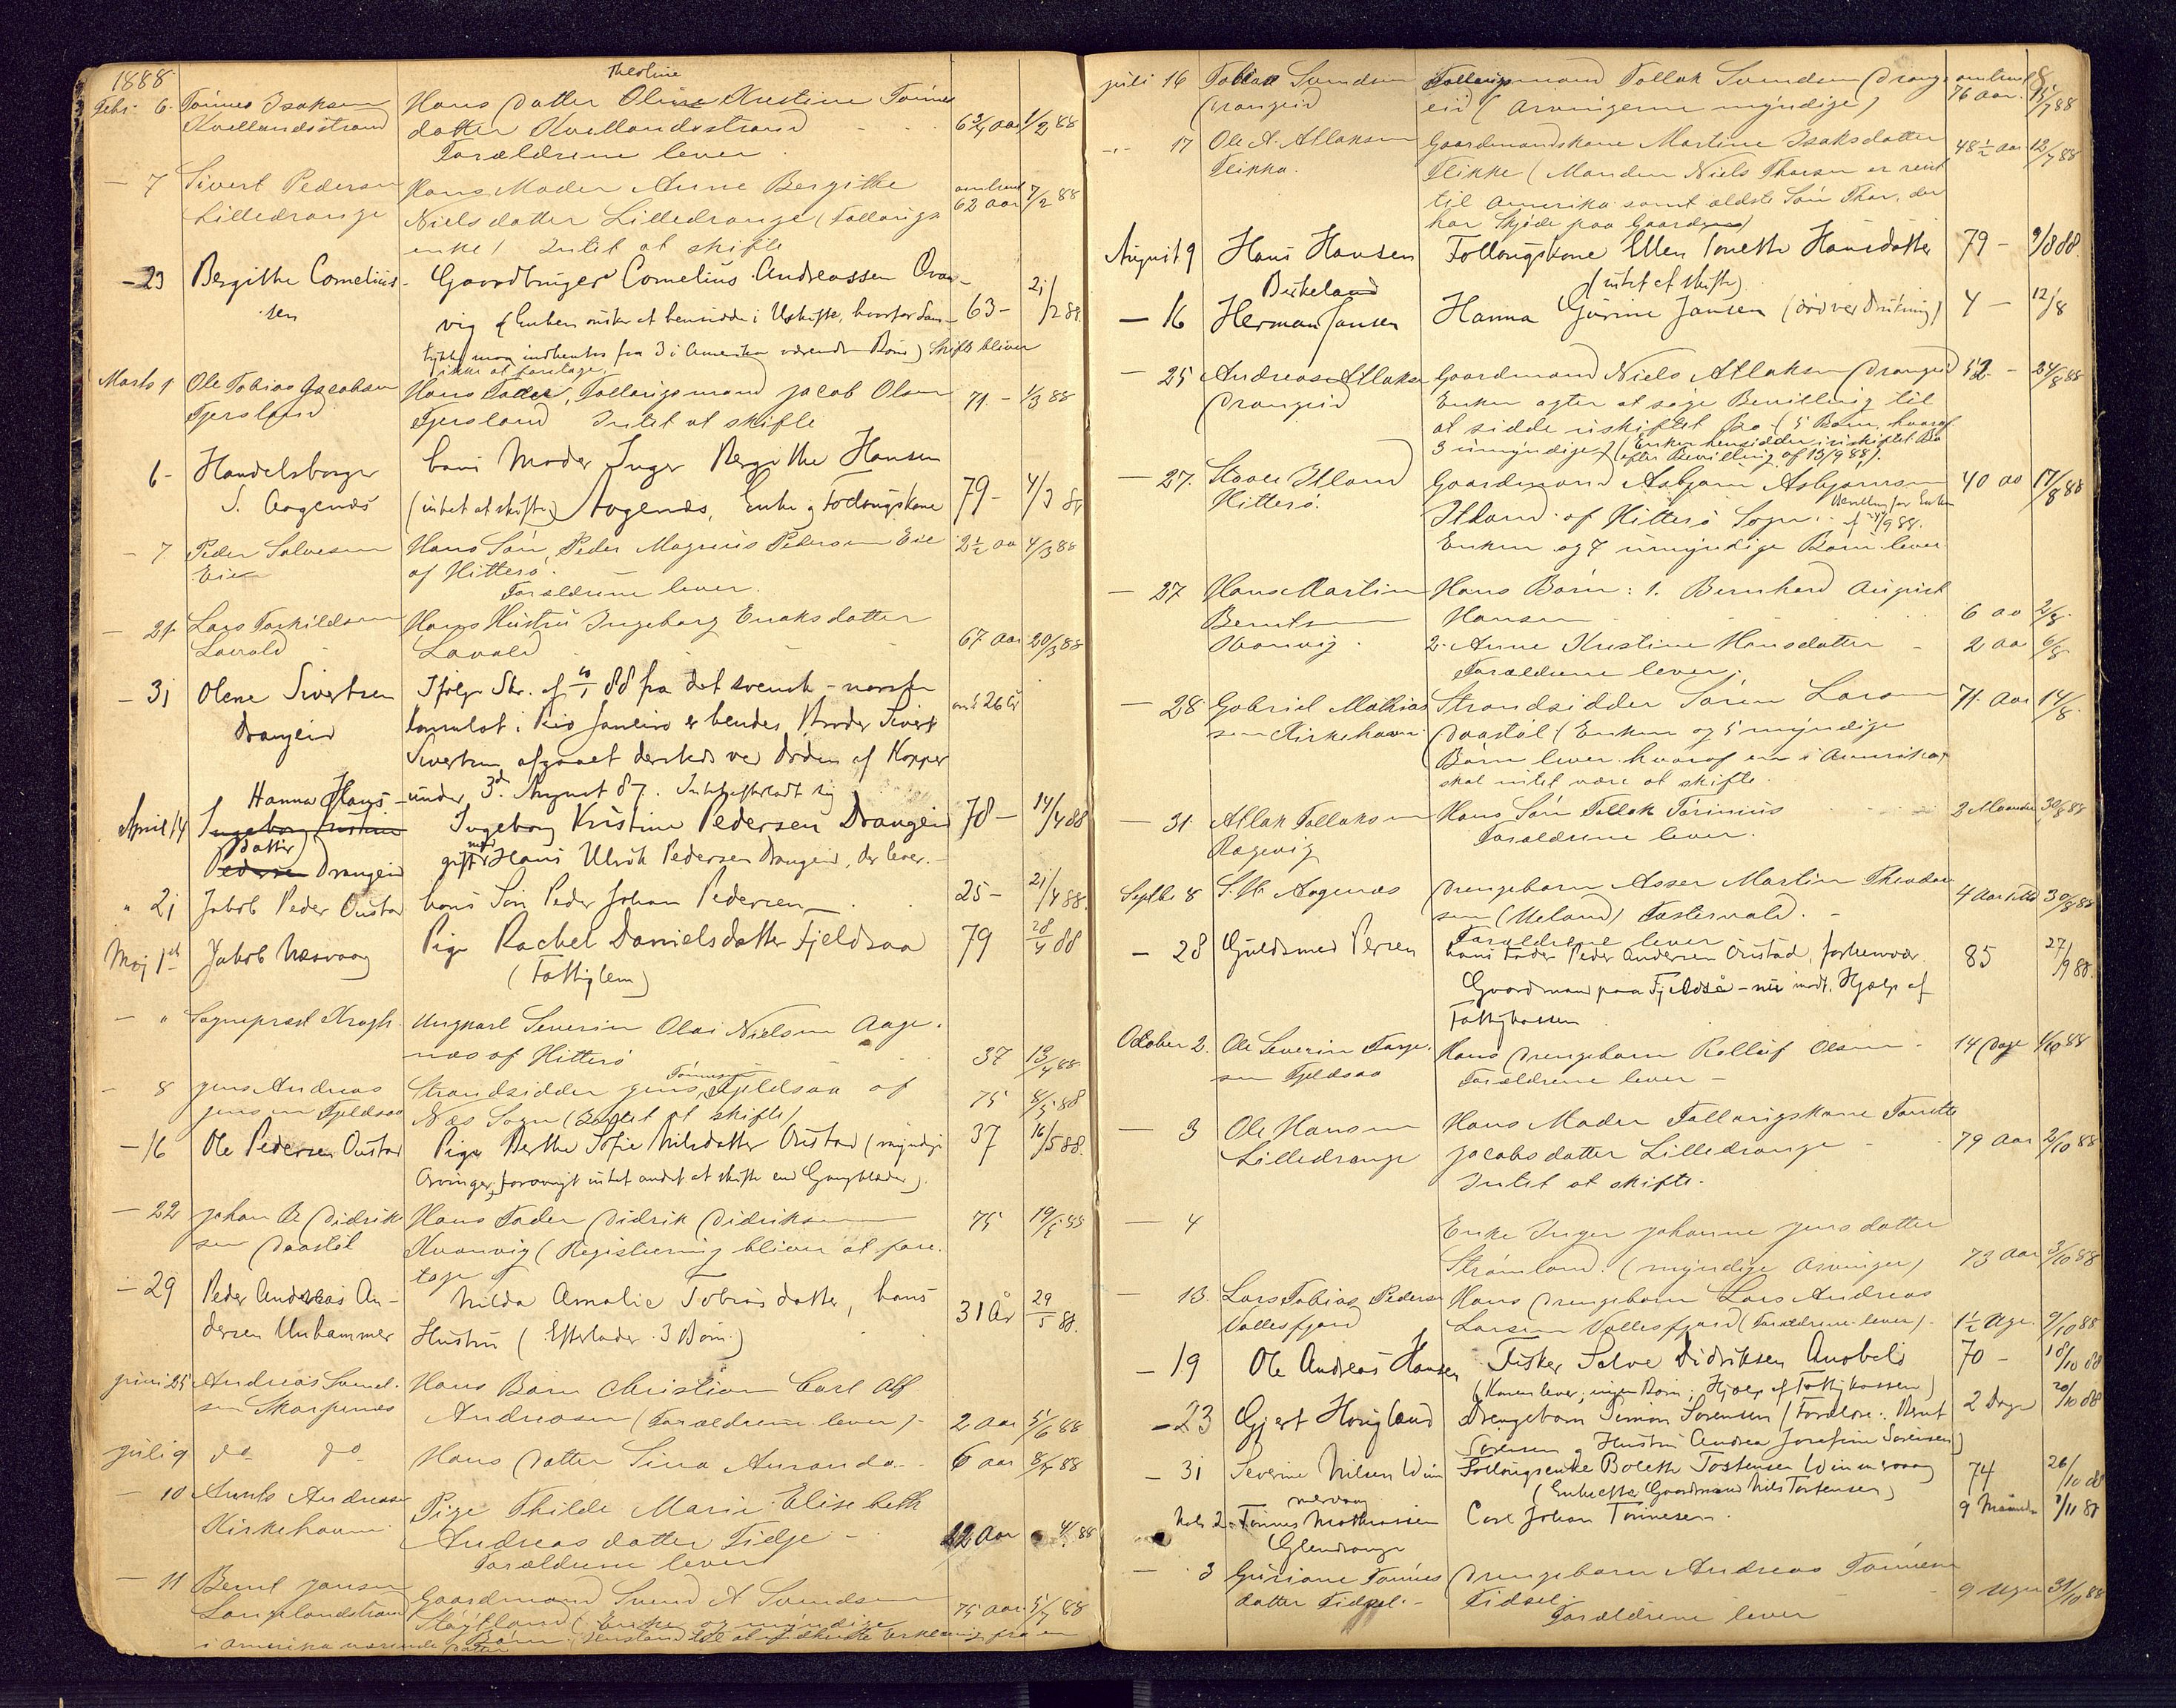 1888
Theoline
Febr. 6. Tönnes Isaksen Hans Datter Oline Kristine Tönnes
Kvellandsstrand datter Kvellandsstrand - - 6 3/4 aar 1/2 88
Forældrene lever.
— 7 Sivert Pedersen Hans Moder Anne Bergithe omtrent
Lilledrange Nielsdatter Lilledrange (Follaugs 62 aar 7/2 88
enke) Intet at skifte
— 23 Bergithe Cornelius- Gaardbruger Cornelius Andreassen 21/2 88.
sen vig (Enken ønsker at hensidde i Uskifte, hvorfor Sam- 63 -
tykke maa indhentes fra 3 i Amerika værende Børn) Skifte bliver
ikke at foretage.
Marts 1 Ole Tobias Jacobsen Hans Fader, Follaugsmand Jacob Olsen 71 - 1/3 88
Fjersland Fjersland Intet at skifte
6 - Handelsborger hans Moder Inger Bergitte Hansen
S. Aagenæs (intet at skifte) Aagenæs, Enke og Follaugskone 79 - 4/3 88
— 7. Peder Salvesen Hans Sön, Peder Magnus Pedersen Eie 2 1/2 aar 4/3 88
Eie af Hitterö.
Forældrene lever.
— 21. Lars Torkildsen Hans Hustru Ingeborg Enoksdatter
Lavold Lavold - - 67 aar 20/3 88
— 31 Olene Sivertsen Ifølge Skr. af 10/1 88 fra det svensk-norske
Drangeid Konsulat i Rio Janeiro er hendes Broder Sivert omt. 26 år
Sivertsen afgaaet dersteds ved Døden af Kopper
under 3die August 87. Intet efterladt sig
Hanna Hans-
April 14 Ingeborg Kristine Ingeborg Kristine Pedersen Drangeid 78 - 14/4 88
datter
Pedersen Drangeid gift med Hans Ulrik Pedersen Drangeid, der lever. -
" 21 Jakob Peder Oustad hans Søn Peder Johan Pedersen - 25 - 21/4 88.
Maj 1st Jakob Næsvaag Pige Rachel Danielsdatter Fjeldsaa 79 28/4 88
(Fattiglem)
— " Sogneprest Krogh. Ungkarl Severin Olai Nielsen Aage-
næs af Hitterö 37 13/4 88.
— 8 Jens Andreas Strandsidder Jens Tönnesen Fjeldsaa af 75 8/5 88
Jensen Fjeldsaa Næs Sogn (Intet at skifte)
— 16 Ole Pedersen Oustad Pige Berthe Sofie Nilsdatter Oustad (myndige 37 16/5 88.
Arvinger, forøvrigt intet andet at skifte end Gangklæder).
— 22 Johan B Didrik- Hans Fader Didrik Didriksen 75 19/5 88
sen Daastöl Kvanvig (Registrering bliver at fore-
tage
— 29 Peder Andreas An- Hilda Amalie Tobiasdatter, hans 31 År 29/5 88.
dersen Unhammer Hustru (Efterlader 3 Børn.)
Juni 25 Andreas Svend- Hans Barn Christian Carl Alf
sen Skarpenes Andreasen (Forældrene lever) - 2 aar 5/6 88
Juli 9 do do Hans Datter Sina Amanda - 6 aar 8/7 88
— 10 Andreasen Pige Thilde Marie Elisebeth
Kirkehavn Andreasdatter Tidje - 22 aar 4/ 88
Forældrene lever
— 11 Bernt Jansen Gaardmand Svend A Svendsen
Langelandstrand (Enke og myndige 75 aar 5/7 88
Börn. til at Erklæring fra en
i Amerika værende
Juli 16 Tobias Svendsen Follaugsmand Tollak Svendsen Drang- omtrent 8/
Drangeid eid (Arvingerne myndige) 76 aar. 15/7 88
-"- 17 Ole A. Atlaksen Gaardmandskone Martine Isaksdatter 48 1/2 aar 12/7 88
Flikka. Flikke (Manden Niels Thorsen er reist
til Amerika samt ældste Sön Thor, der
har Skjöde paa Gaarden)
August 9 Hans Hansen Follaugskone Ellen Tonette Hansdatter 79 - 9/8 88.
Birkeland (intet at skifte)
— 16 Herman Jansen Hanna Gurine Jansen (død ved Drukning) 4 - 12/8
— 25 Andreas Atlaksen Gaardmand Niels Atlaksen Drangeid 52 - 24/8 88
Drangeid Enken agter at søge Bevilling til
at sidde i uskiftet Bo (5 Børn, hvoraf
3 umyndige) (Enken hensidder i uskiftet Bo
efter Bevilling af 13/9 88).
— 27. Staale Itland Gaardmand Asbjørn Asbjørnsen 40 aa 17/8 88
Hitterö. Itland af Hitterö Sogn. Bevilling for Enken
af 24/9 88.
Enken og 7 umyndige Børn lever
— 27 Hans Martin Hans Börn: 1. Bernhard August
Berntsen Hansen 6 aa 2/8.
Kvanvig. 2. Anne Kristine Hansdatter - 2 aa 6/8.
Forældrene lever.
— 28 Gabriel Mathias- Strandsidder Sören Larsen 71. aar 14/8.
sen Kirkehavn Daastöl (Enken og 5 myndige
Börn lever hvoraf en i Amerika)
skal intet være at skifte.
— 31. Atlak Tollaksen Hans Sön Tollak Törinius - 2 Maaneder 30/8 88
Ragevig Forældrene lever.
Septbr 8 S. W. Aagenæs Drengebarn Asser Martin Theodor- 4 aar 30/8 88
sen (Ueland) Fastervold. -
Forældrene lever
— 28 Guldsmed Persen hans Fader Peder Andersen Oustad, forhenvær. 85 27/9 88.
Gaardmand paa Fjeldså - nu modt. Hjælp af
Fattigkassen
October 2. Ole Severin Torje- Hans Drengebarn Rolluf Olsen - 14 Dage 1/10 88
sen Fjeldsaa Forældrene lever -
— 3 Ole Hansen Hans Moder Follaugskone Tonette
Lilledrange Jacobsdatter Lilledrange - 79 aar 2/10 88
Intet at skifte.
— 4 Enke Inger Johanne Jensdatter
Strömland. (myndige Arvinger) 73 aar 3/10 88
— 13. Lars Tobias Pedersen Hans Drengebarn Lars Andreas
Vollesfjord Larsen Vollesfjord (Forældrene lever). 1 1/2 Uge. 9/10 88
— 19 Ole Andreas Hansen Fisker Salve Didriksen Anabels 70 - 18/10 88
(Konen lever, ingen Børn; Hjælp af Fattigkassen)
— 23 Gjert Hougland Drengebarn Simon Sørensen (Forældre: Bernt 2 Dage 20/10 88
Sørensen og Hustru Andrea Josefine Sørensen)
— 31 Severine Nilsen Vin- Follaugsenke Bolette Tostensen Vinnervaag 74 26/10 88
nervaag (Enke efter Gaardmand Nils Tostensen)
Nov. 2. Tönnes Mathiassen Carl Johan Tönnesen. 9 Måneder 1/11 88
Glendrange
— 3 Guriane Tönnes- Drengebarn Andreas Tönnesen
datter Tidsel. - Tidsel - 9 Uger 31/10 88
Forældrene lever